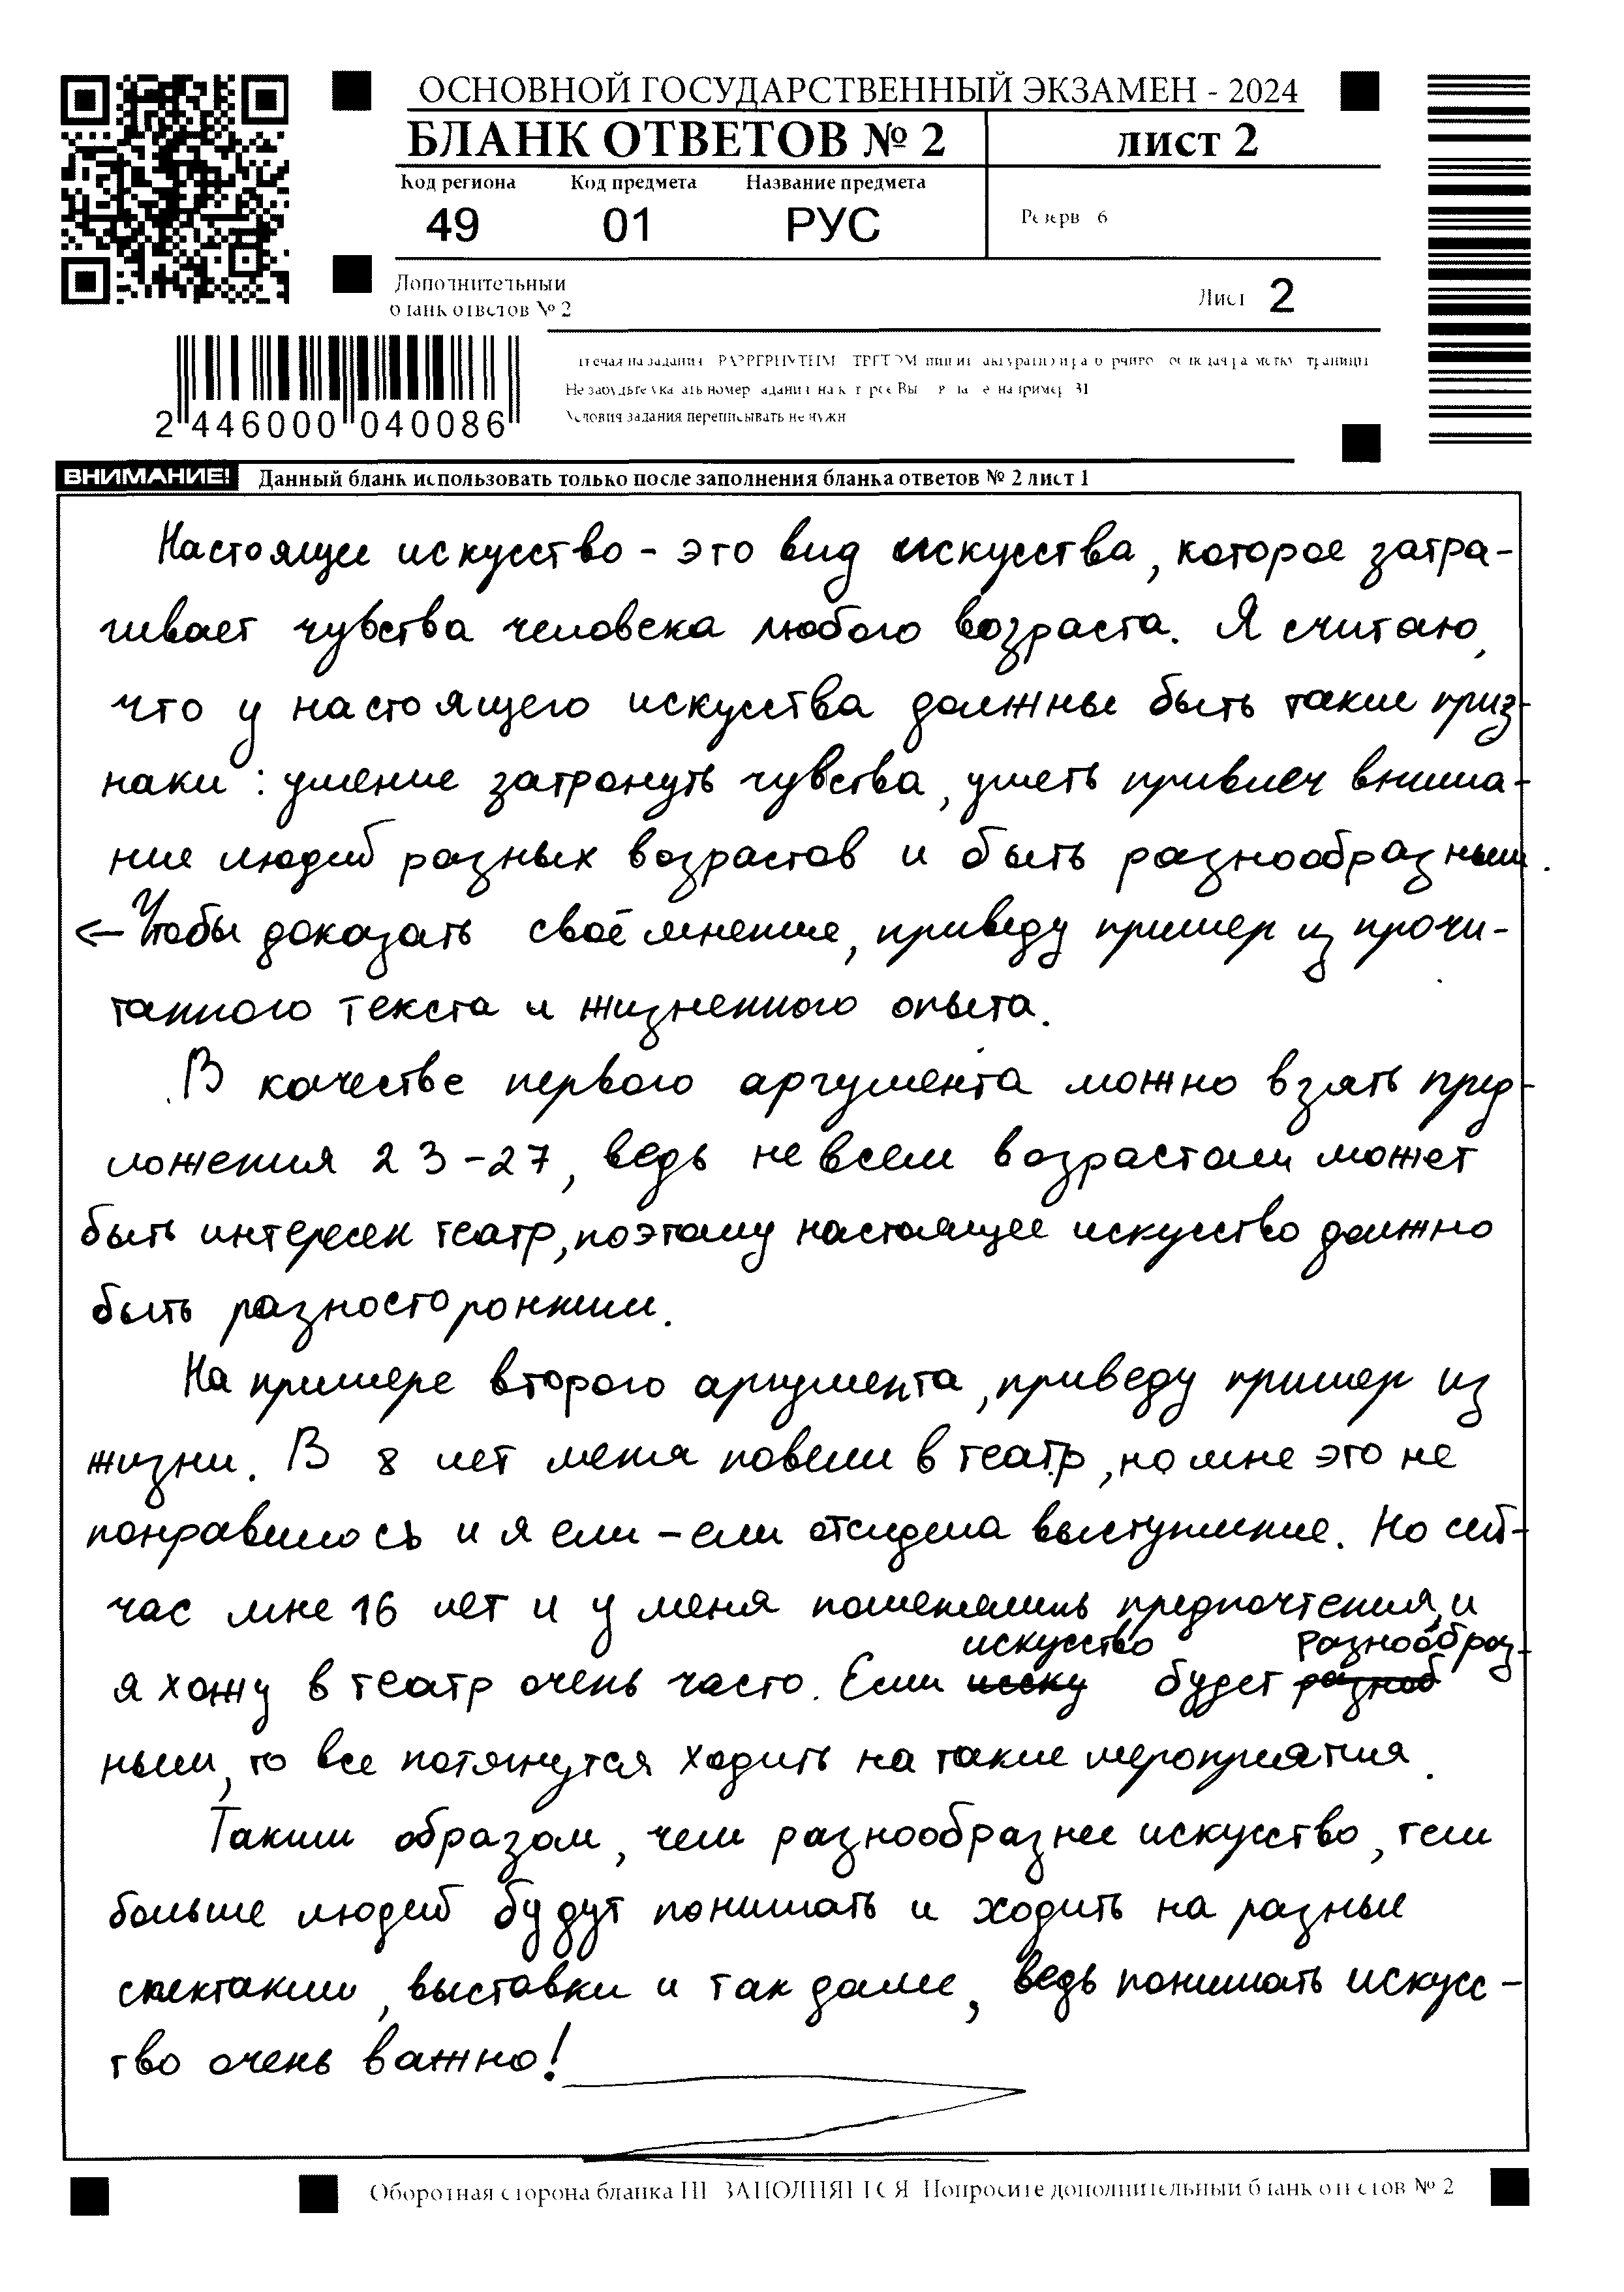 ОСНОВНОЙ ГОСУДАРСТВЕННЫЙ ЭКЗАМЕН - 2024
БЛАНК ОТВЕТОВ № 2 лист 2
Код региона Код предмета Название предмета
49 01 РУС
Резерв 6
Дополнительный
бланк ответов № 2
Лист 2
2 446000 040086
Условия задания переписывать не нужн
ВНИМАНИЕ! Данный бланк использовать только после заполнения бланка ответов № 2 лист 1
Настоящее искусство - это вид искусства, которое затра-
гивает чувства человека любого возраста. Я считаю,
что у настоящего искусства должны быть такие приз-
наки: умение затронуть чувства, уметь привлеч внима-
ние людей разных возрастов и быть разнообразным.
<- Чтобы доказать своё мнение, приведу пример из прочи-
танного текста и жизненного опыта.
В качестве первого аргумента можно взять пред-
ложения 23-27, ведь не всем возрастам может
быть интересен театр, поэтому настоящее искусство должно
быть разносторонним.
На примере второго аргумента, приведу пример из
жизни. В 8 лет меня повели в театр, но мне это не
понравилось и я ели-ели отсидела выступление. Но сей-
час мне 16 лет и у меня поменялись предпочтения, и
искусство Разнообраз-
я хожу в театр очень часто. Если иску будет разноб
ным, то все потянутся ходить на такие мероприятия.
Таким образом, чем разнообразнее искусство, тем
больше людей будут понимать и ходить на разные
спектакли, выставки и так далее, ведь понимать искусс-
тво очень важно!
Оборотная сторона бланка НЕ ЗАПОЛНЯЕТСЯ Попросите дополнительный бланк ответов № 2